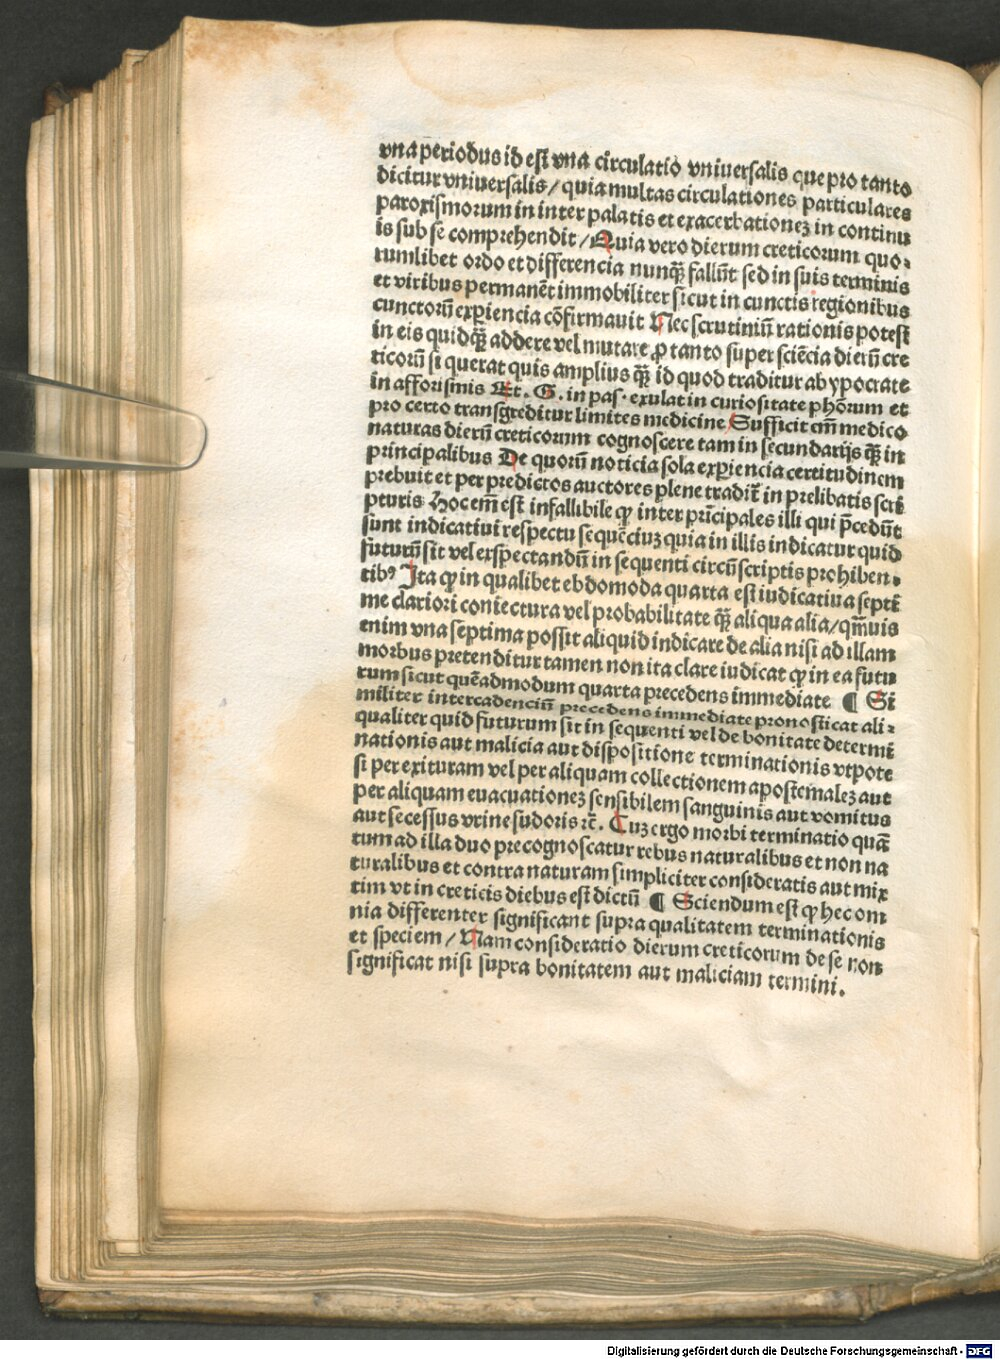 vna periodus id est vna circulatio vniuersalis que pro tanto
dicitur vniuersalis/ quia multas circulationes particulares
paroxismorum in inter palatis et exacerbationez in continu
is sub se comprehendit/ Quia vero dierum creticorum quo⸗
rumlibet ordo et differencia nunqȝ̃ fallũt sed in suis terminis
et viribus permanẽt immobiliter sicut in cunctis regionibus
cunctorũ exꝑiencia cõfirmauit Nec scrutiniũ rationis potest
in eis quidqȝ̃ addere vel mutare ꝓ tanto super sciẽcia dierũ cre
ticorũ si querat quis amplius qȝ̃ id quod traditur ab ypocrate
in afforismis Et. G. in pas. exulat in curiositate phõrum et
pro certo transgreditur limites medicine Sufficit em̃ medico
naturas dierũ creticorum cognoscere tam in secundarijs qȝ̃ in
principalibus De quorũ noticia sola exꝑiencia certitudinem
prebuit et per predictos auctores plene tradit̃ in prelibatis scri
pturis Hoc em̃ est infallibile ꝙ inter prĩcipales illi qui p̃cedũt
sunt indicatiui respectu sequẽciuz quia in illis indicatur quid
futurũ sit vel exspectandũ in sequenti circũscriptis prohiben⸗
tibꝰ Ita ꝙ in qualibet ebdomoda quarta est iudicatiua septĩ
me clariori coniectura vel probabilitate qȝ̃ aliqua alia/ qm̃uis
enim vna septima possit aliquid indicare de alia nisi ad illam
morbus pretenditur tamen non ita clare iudicat ꝙ in ea futu
rum sicut quẽadmodum quarta precedens immediate ¶ Si
militer intercadenciũ precedens immediate pronosticat ali⸗
qualiter quid futurum sit in sequenti vel de bonitate determĩ
nationis aut malicia aut dispositione terminationis vtpote
si per exituram vel per aliquam collectionem apostẽmalez aut
per aliquam euacuationez sensibilem sanguinis aut vomitus
aut secessus vrine sudoris ꝛc̃. Cuz ergo morbi terminatio quã
tum ad illa duo precognoscatur rebus naturalibus et non na
turalibus et contra naturam simpliciter consideratis aut mix
tim vt in creticis diebus est dictũ ¶ Sciendum est ꝙ hec om
nia differenter significant supra qualitatem terminationis
et speciem/ Nam consideratio dierum creticorum de se non
significat nisi supra bonitatem aut maliciam termini.
Digitalisierung gefördert durch die Deutsche Forschungsgemeinschaft - DFG